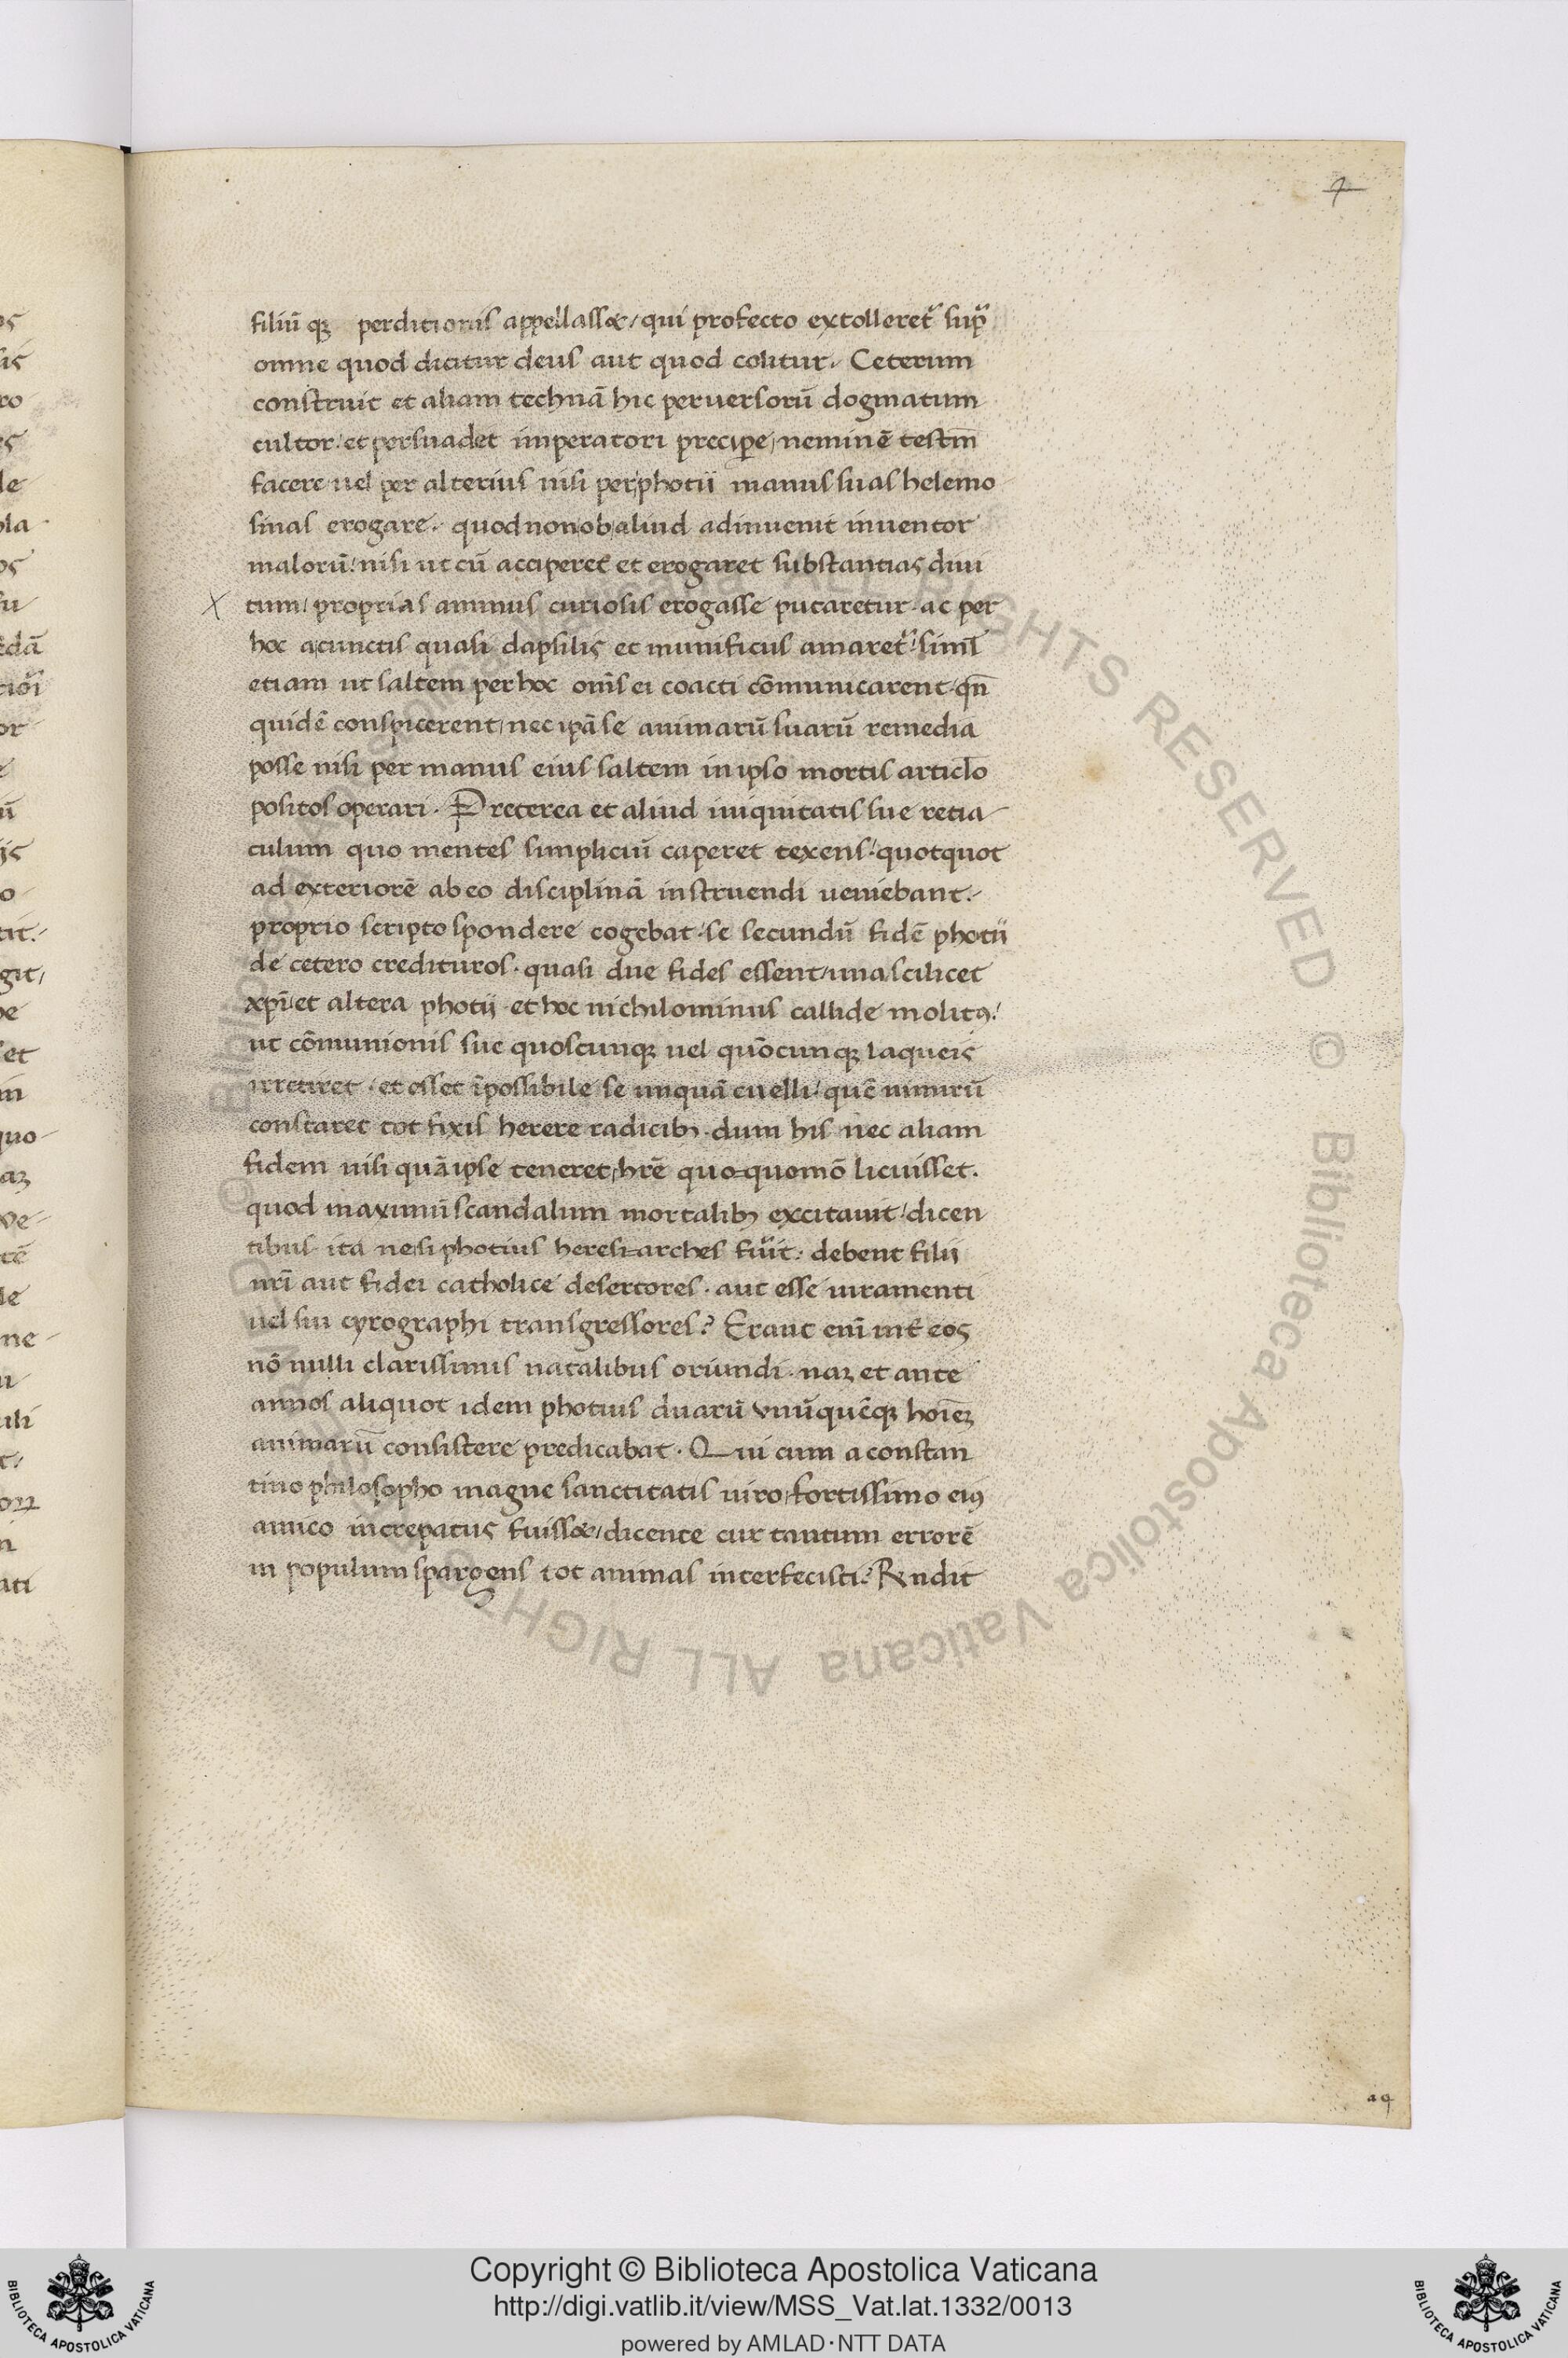 7
filiū qꝫ perditionis appellasset / qui profecto extolleret᷑ sup᷑
omne quod dicitur deus aut quod colitur. Ceterum
construit et aliam technā hic peruersorū dogmatum
cultor. et persuadet imperatori precipe, neminē testm̄
facere uel per alterius nisi per photii manus suas helemo
sinas erogare. quod non ob aliud adinuenit inuentor
malorū. nisi ut cū acciperet et erogaret substantias diui
x tum / proprias animus curiosis erogasse putaretur. ac per
hoc a cunctis quasi dapsilis et munificus amaret᷑. siml̄
etiam ut saltem per hoc om̄s ei coacti cōmunicarent. qn̄
quidē conspicerent / nec ip̄ā se animarū suarū remedia
posse nisi per manus eius saltem in ipso mortis articl̄o
positos operari. Preterea et aliud iniquitatis sue retia
culum quo mentes simpliciū caperet texens. quotquot
ad exteriorē ab eo disciplinā instruendi ueniebant.
proprio scripto spondere cogebat. se secundū fidē photii
de cetero credituros. quasi due fides essent / una scilicet
xp̄i et altera photii. et hoc nichilominus callide molitꝰ.
ut cōmunionis sue quoscunqꝫ uel quōcunqꝫ laqueis
irretiret. et esset īpossibile se unquā euelli. quē nimirū
constaret tot fixis herere radicibꝫ. dum his nec aliam
fidem nisi quā ipse teneret, hr̄e quo-quomō licuisset.
quod maximū scandalum mortalibꝫ excitauit. dicen
tibus ita ne si photius heresi-arches fuĭt. debent filii
nr̄i aut fidei catholice desertores. aut esse iuramenti
uel sui cyrographi transgressores? Erant eni᷑ int̄ eos
nō nulli clarissimis natalibus oriundi. naꝫ et ante
annos aliquot idem photius duarū vnūquēqꝫ hoieꝫ
animarū consistere predicabat. Qui cum a constan
tino philosopho magne sanctitatis uiro, fortissimo eiꝰ
amico increpatus fuisset / dicente cur tantum errorē
in populum spargens tot animas interfecisti? Rn̄dit
a 9
Copyright © Biblioteca Apostolica Vaticana
http://digi.vatlib.it/view/MSS_Vat.lat.1332/0013
powered by AMLAD·NTT DATA